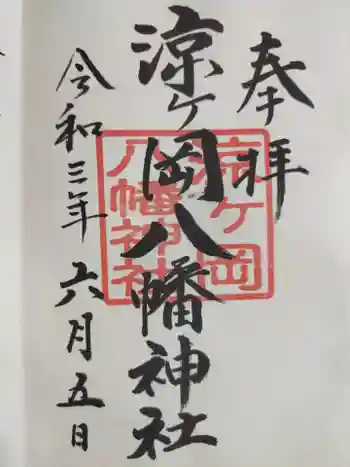 奉拝
涼ケ岡八幡神社
涼ヶ岡
八幡神社
令和三年六月五日